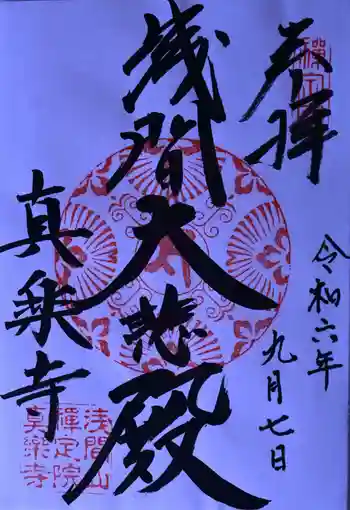 奉拝
禅定
令和六年
九月七日
浅間大悲殿
真楽寺
浅間山
禅定院
真楽寺